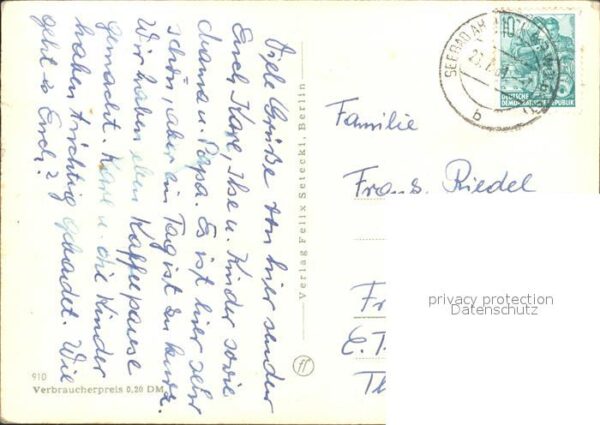 Viele Grüße von hier senden
Euch, Karl, Ilse u. Kinder sowie
u. Papa. Es ist hier sehr
schön, aber ein Tag ist zu kurz.
Wir haben eben Kaffeepause
gemacht. Karl u. die Kinder
haben richtig gebadet. Wie
geht's Euch?
Verlag Felix Setecki, Berlin
910
Verbraucherpreis 0,20 DM
SEEBAD AH
b
10
DEUTSCHE
DEMOKRATISCHE REPUBLIK
Familie
Frans. Riedel
Fr
E.T.
Th
privacy protection
Datenschutz